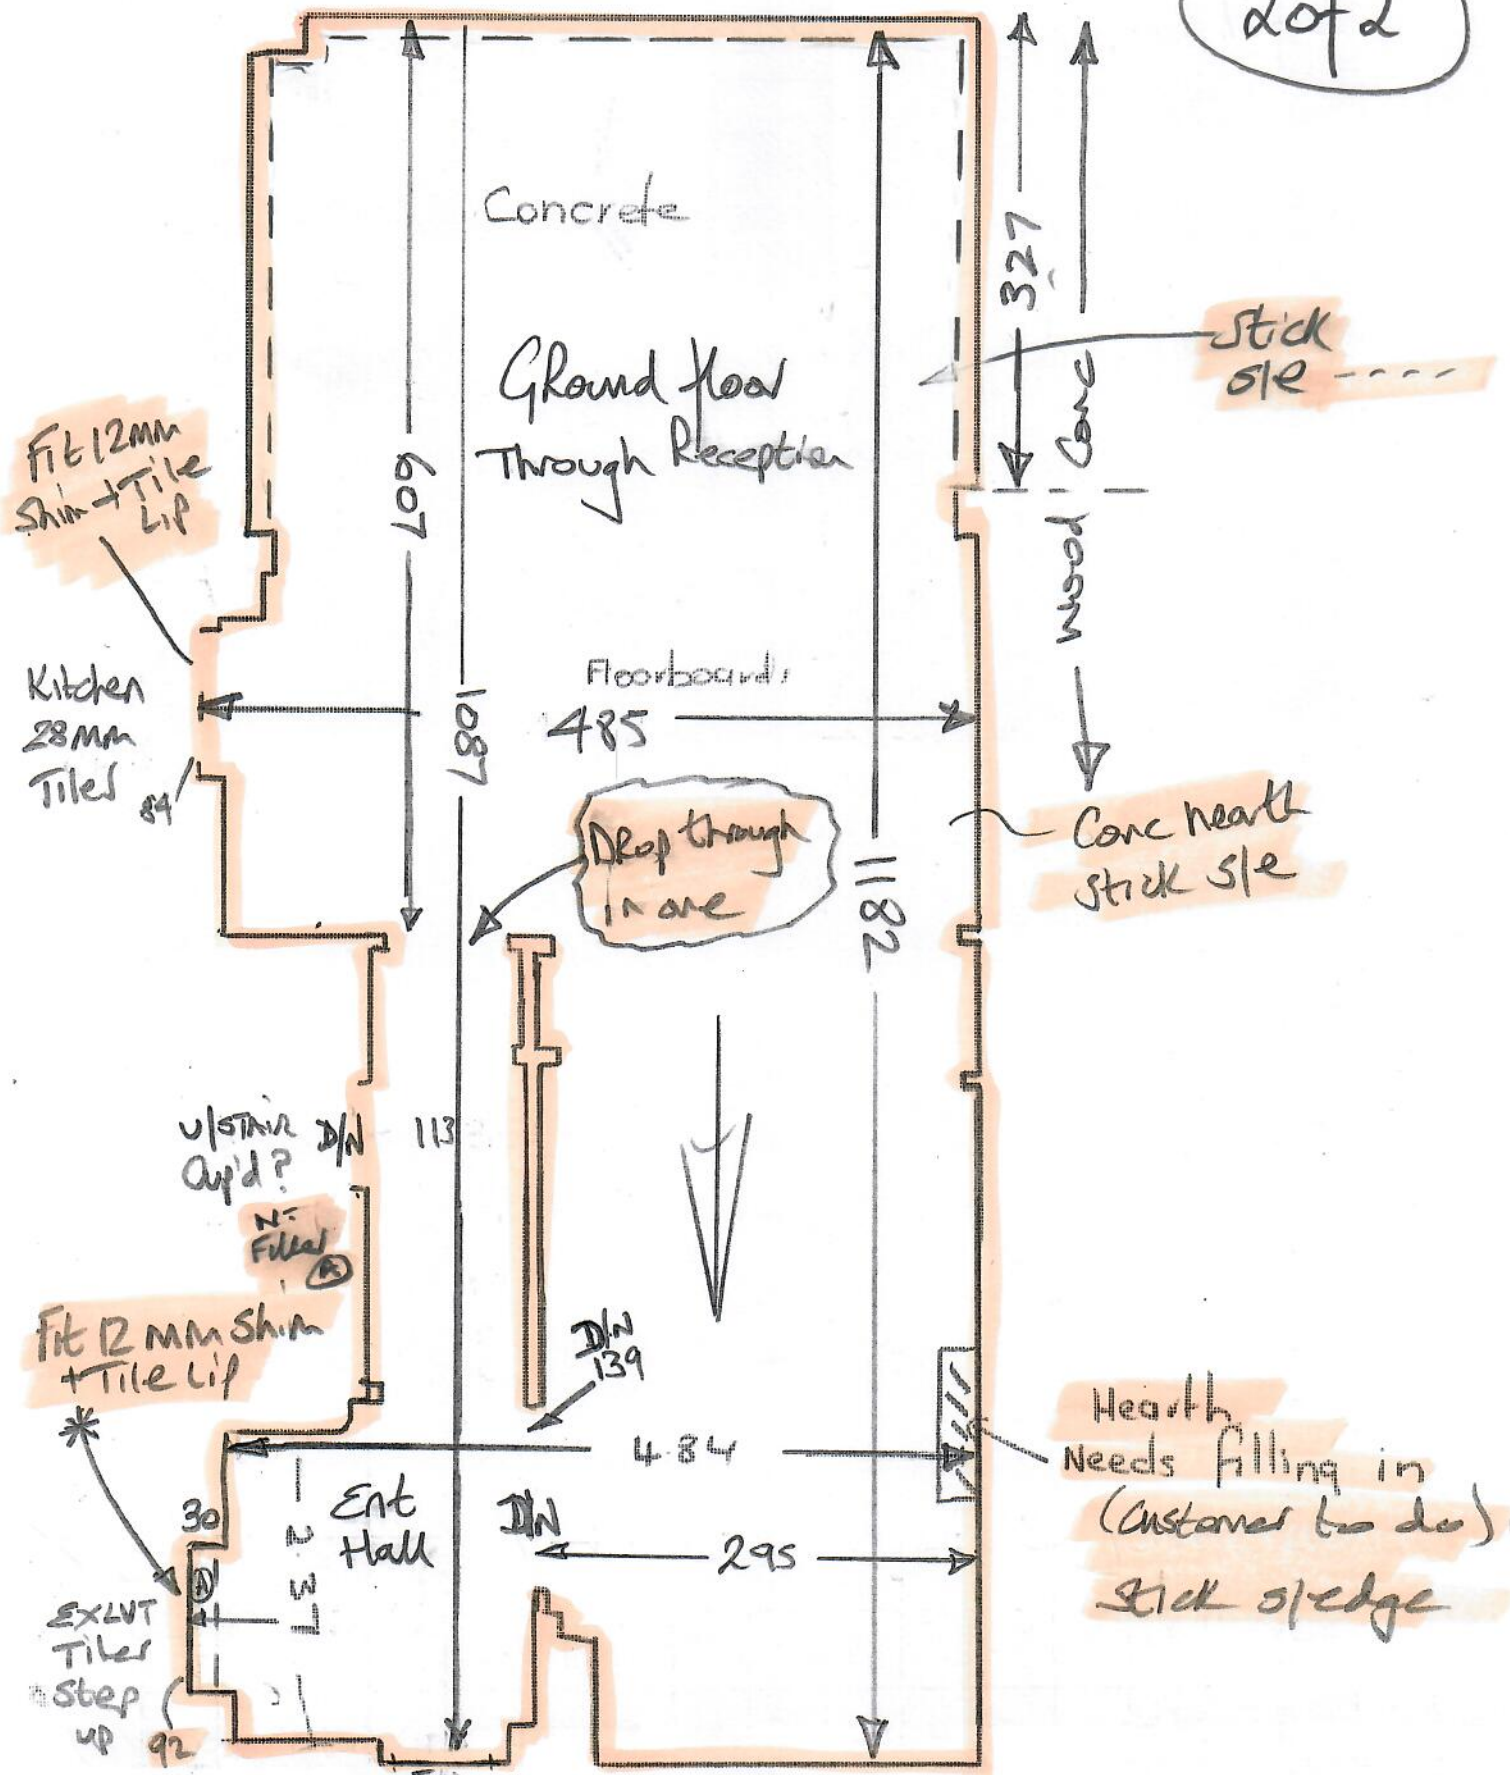 2 of 2
Concrete
327
Conc
Stick
s/e ----
Ground floor
Through Reception
Fit 12mm
Shim + Tile
Lip
607
Wood
Kitchen
28mm
Tiles
84
Floorboards
485
1087
Drop through
in one
1182
Conc hearth
stick s/e
U/STAIR
Cup'd?
D/N
113
Filler
A
Fit 12 mm Shim
+ Tile Lip
*
D/N
139
484
Hearth
Needs filling in
(Customer to do)
Stick s/edge
30
Ent
Hall
D/N
295
237
A
EX LVT
Tiles
Step
up
92